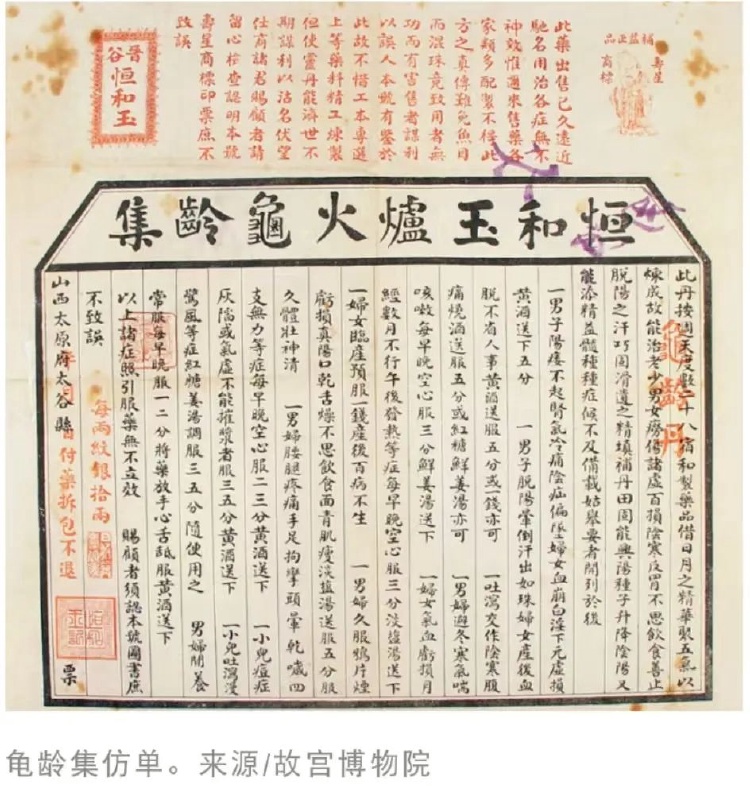 補益正品
壽星
商標
此藥出售已久遠近
馳名用治各症無不
神效惟邇來售藥各
家類多配製不得此
方之真傳難免魚目
而混珠竟致用者無
功而有害售者謀利
以誤人本號有鑒於
此故不惜工本專選
上等藥料精工煉製
但使靈丹能濟世不
期謀利以沽名伏望
仕商諸君賜顧者請
留心檢查認明本號
壽星商標印票庶不
致誤
晉谷
恒和玉
恒和玉爐火龜齡集
此丹按週天度數二十八宿和製藥品借日月之精華製五氣以
煉成故能治老少男女癆傷諸虛百損陰寒反胃不思飲食善止
脫陽之汗巧固滑遺之精填補丹田固能興陽種子升降陰陽又
能添精益髓種種症候不及備載姑舉要者開列於後
一男子陽痿不起腎氣冷痛陰症偏墜婦女血崩白淫下元虛損
黃酒送下五分 一男子脫陽暈倒汗出如珠婦女產後血
脫不省人事黃酒送服五分或一錢亦可 一吐瀉交作陰寒腹
痛燒酒送服五分或紅糖鮮姜湯亦可 一男婦避冬寒氣喘
咳嗽每早晚空心服三分鮮姜湯送下 一婦女氣血虧損月
經數月不行午後發熱等症每早晚空心服三分淡鹽湯送下
一婦女臨產預服一錢產後百病不生 一男婦久服鴉片煙
虧損真陽口乾舌燥不思飲食面青肌瘦淡鹽湯送服五分服
久體壯神清 一男婦腰腿疼痛手足拘攣頭暈乾嘔四
支無力等症每早晚空心服二三分黃酒送下 一小兒痘症
灰陷或氣虛不能摧漿者服三五分黃酒送下 一小兒吐瀉漫
驚風等症紅糖姜湯調服三五分隨使用之 男婦閒養
常服每早晚服一二分將藥放手心舌舐服黃酒送下
以上諸症照引服藥無不立效 賜顧者須認本號圖書庶
不致誤 每兩紋銀拾兩
山西太原府太谷縣 付藥拆包不退 票
龜齡丹
龟龄集仿单。来源/故宫博物院